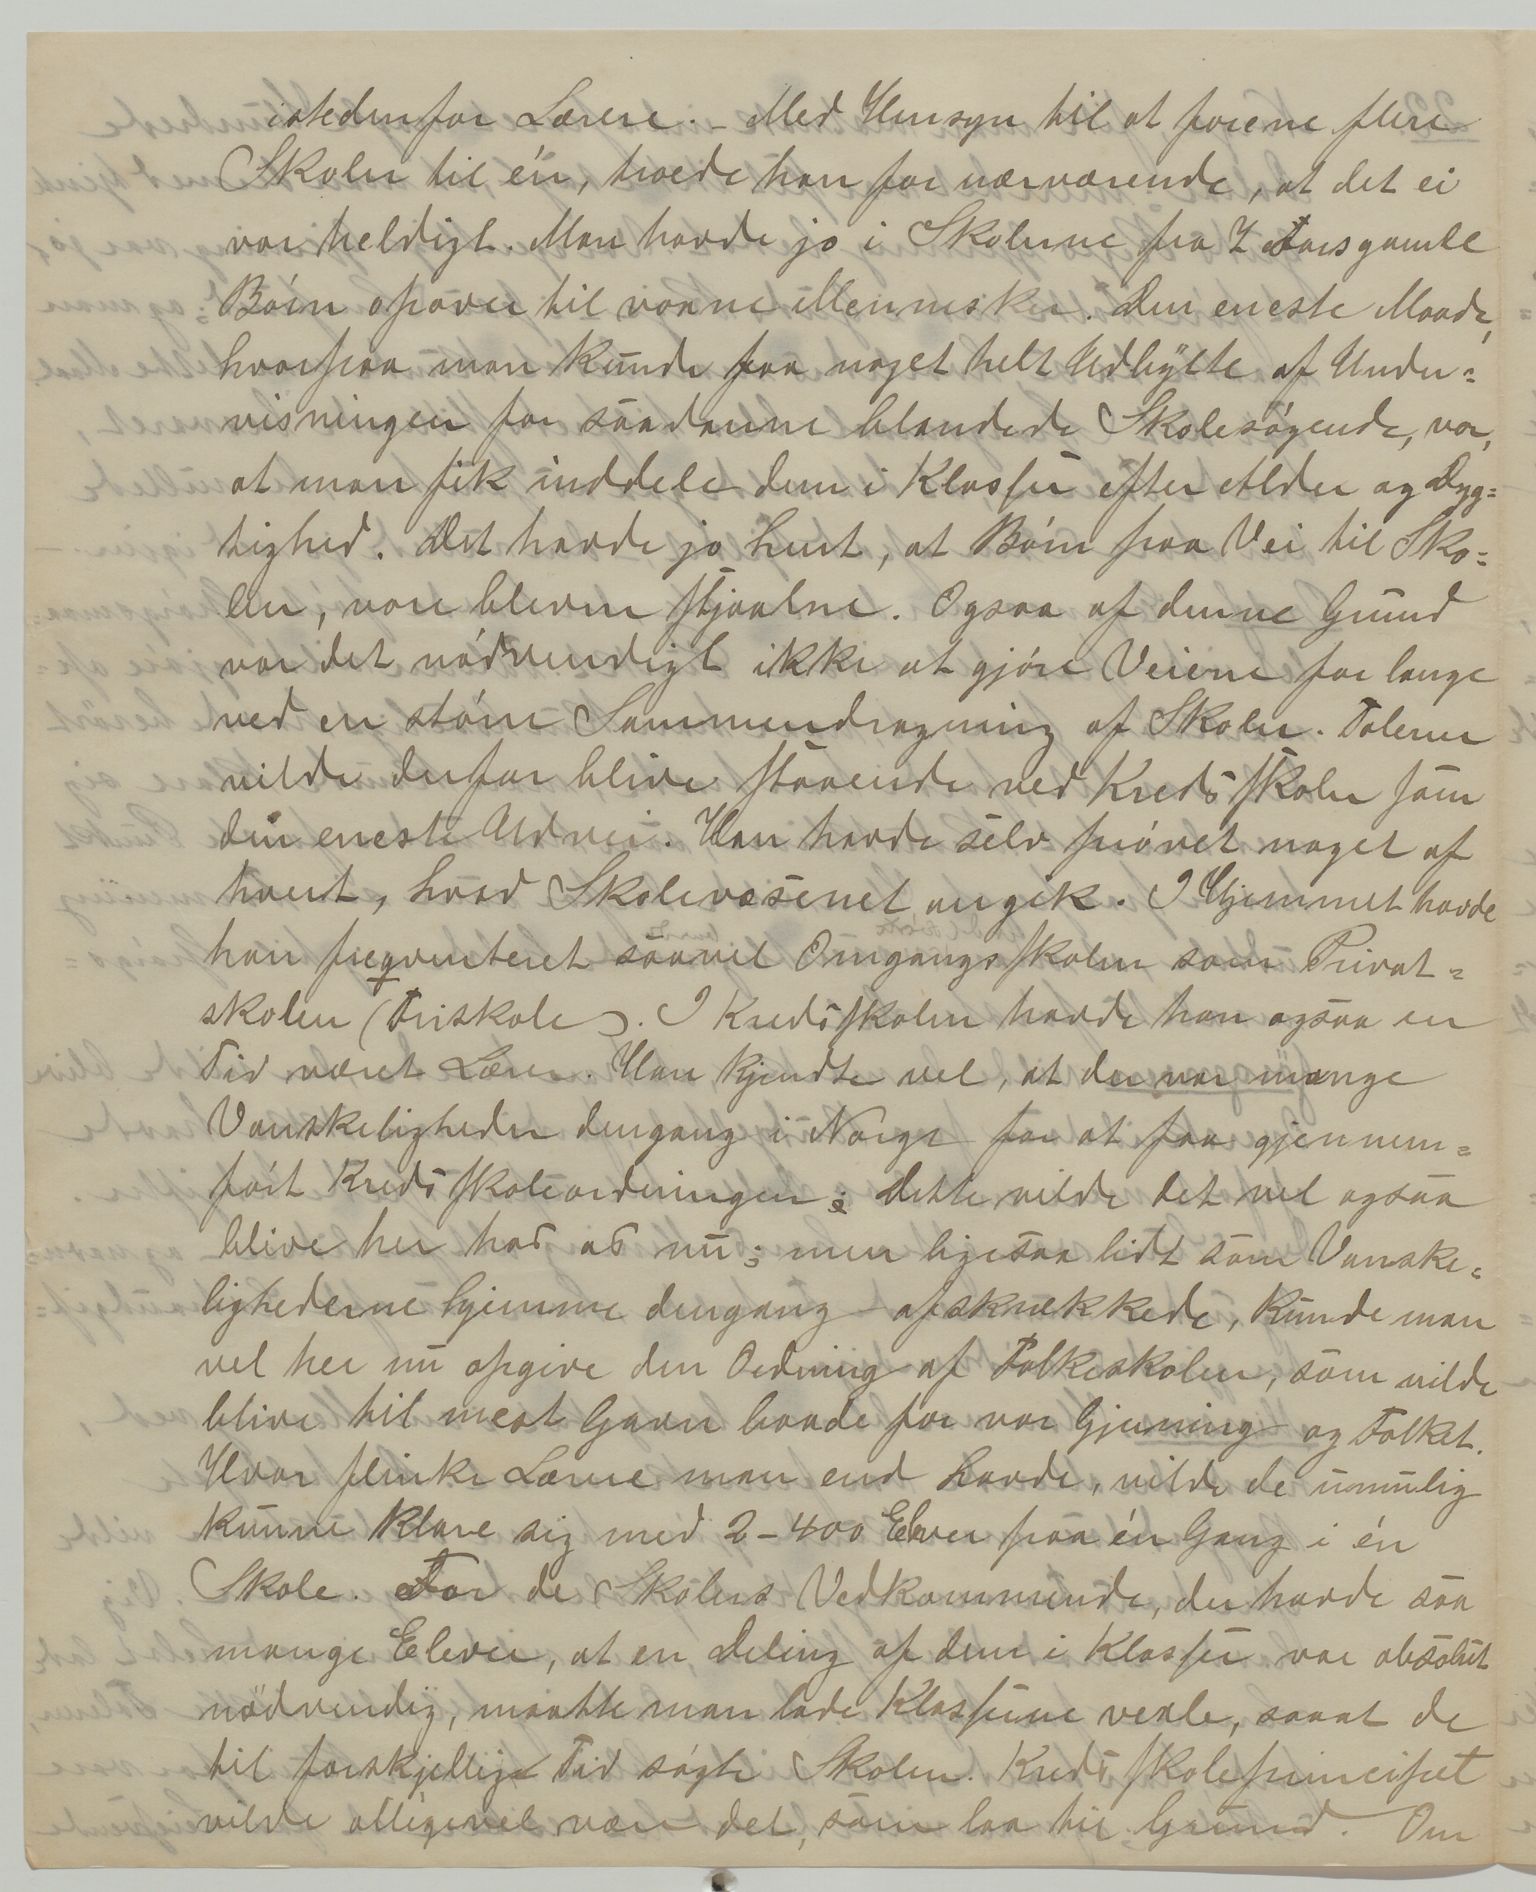 istedenfor Lærere. – Med Hensyn til at forene flere
Skoler til én, troede han for nærværende, at det ei
var heldigt. Man havde jo i Skolerne fra 7 Aarsgamle
Børn opover til voxne Mennesker. Den eneste Maade,
hvorpaa man kunde faa noget helt Udbytte af Under=
visningen for saadanne blandede Skolesøgende, var,
at man fik inddele dem i Klasser efter Alder og Dyg=
tighed. Det havde jo hændt, at Børn paa Vei til Sko=
len, vare blevne stjaalne. Ogsaa af denne Grund
var det nødvendigt ikke at gjøre Veiene for lange
ved en større Sammendragning af Skoler. Taleren
vilde derfor blive staaende ved Kredsskolen som
den eneste Udvei. Han havde selv prøvet noget af
hvert, hvad Skolevæsenet angik. I Hjemmet havde
han freqventeret saavel Omgangsskolen som Privat=
skolen (Friskole). I Kredsskolen havde han ogsaa en
Tid været Lærer. Han kjendte vel, at der var mange
Vanskeligheder dengang i Norge for at faa gjennem=
ført Kredsskoleordningen; dette vilde det vel ogsaa
blive her hos os nu; men ligesaa lidt som Vanske=
lighederne hjemme dengang afskrækkede, kunde man
vel her nu opgive den Ordning af Folkeskolen, som vilde
blive til mest Gavn baade for vor Gjerning og Folket.
Hvor flinke Lærere man end havde, vilde de umulig
kunne klare sig med 2–400 Elever paa én Gang i én
Skole. For de Skolers Vedkommende, der havde saa
mange Elever, at en Deling af dem i Klasser var absolut
nødvendig, maatte man lade Klasserne vexle, saaat de
til forskjellig Tid søgte Skolen. Kredsskoleprincipet
vilde alligevel være det, som laa til Grund. Om